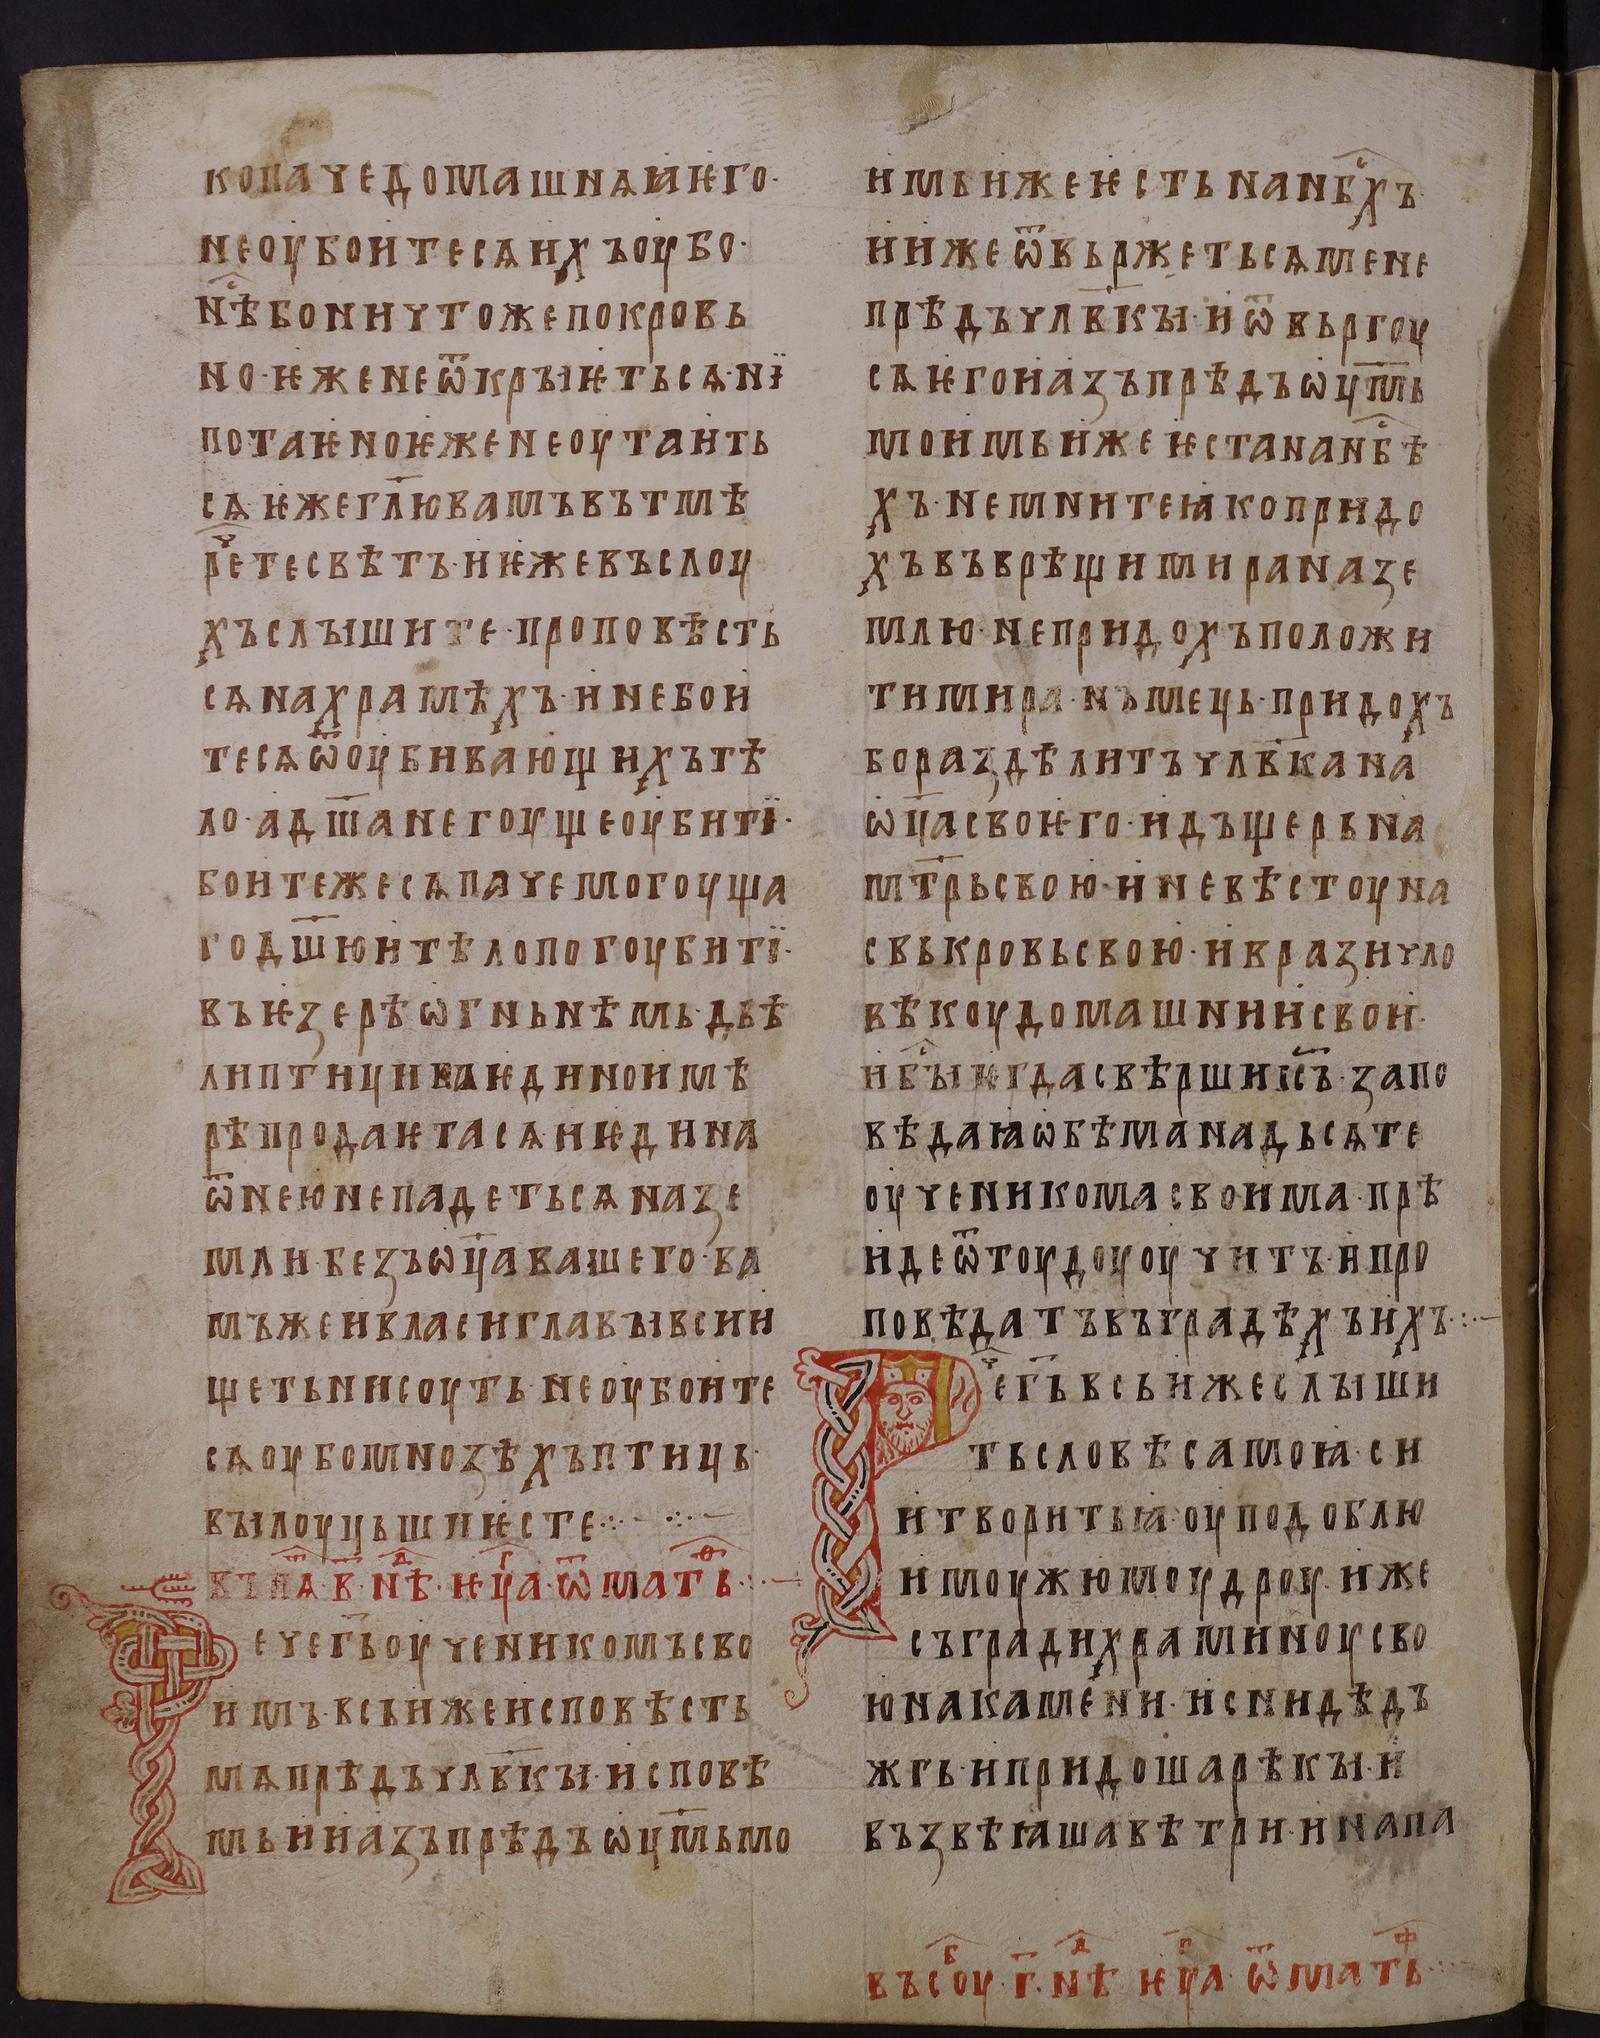 копаүедомашнѧꙗѥго·
неоубоитесѧихъоубо·
нѣ҇бониүтожепокровь
но·ѥженеѿкрꙑѥтьсѧ·нї
потаѥноѥженеоутаить
сѧѥжегл҃ювамъвътмѣ
рⷱ҇етесвѣтъ·иѥжевъслоу
хъслꙑшите·проповѣсть
сѧнахрамѣхъ·инебои
тесѧѿоубивающихътѣ
ло·адш҃анегоущеоубитї·
боитежесѧпаүемогоуща
годш҃юитѣлопогоубитї·
въѥзерѣѡгньнѣмь·двѣ
липтицинаѥдиноимѣ
рѣпродаѥтасѧиѥдина
ѿнеюнепадетьсѧназе
мли·безъѡц҃авашего·ва
мъжеивласиглавꙑвсии
щетьнисоуть·неоубоите
сѧоубомнозѣхъптиць·
вꙑлоуцьшиѥсте
въпѧ·в҃·нⷣѣ·ѥц҃а·ѿматⷴь
Рⷱеүегь҃оүченикомъсво
имъ·всьижеисповѣсть
мѧпрѣдъүлв҃кꙑ·исповѣ
мьииазъпрѣдъѡцм҃ьмо
имьижеѥстьнанб҃схъ·
иижеѿвьржетьсѧмене
прѣдъүлв҃кꙑ·иѿвьргоу
сѧѥгоиазъпрѣдъѡцм҃ь
моимьижеѥстананб҃сѣ
хъ·немнитеꙗкопридо
хъвъврѣщимираназе
млю·непридохъположи
тимира·нъмець·придохъ
боразdѣлитъүлв҃кана
ѡц҃асвоѥго·идъщерьна
мт҃рьсвою·иневѣстоуна
свькровьсвою·ивразиүло
вѣкоудомашниисвои·
иб҇ꙑѥгдасвѣршиис҃ъ·запо
вѣдаꙗѡбѣманадьсѧте
оуүеникомасвоима·прѣ
идеѿтоудоуоуүитъ·ипро
повѣдатъвъградѣхъихъ
Рⷱегь҃всьижеслꙑши
тьсловѣсамоꙗ·си
итворитьꙗ·оуподоблю
имоужюмоудроу·иже
съградихраминоусво
юнакамени·исниdѣдъ
жгь·ипридошарѣкꙑ·и
възвѣꙗшавѣтри·инапа
въсⷠоу·г҃·нⷣѣ·ѥц҃а·ѿматⷴь